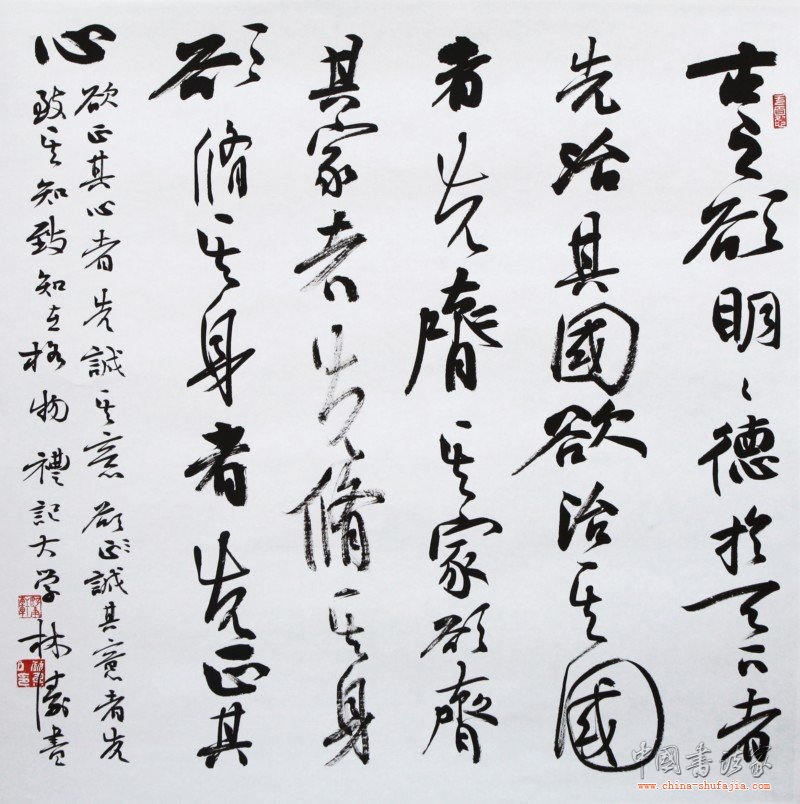 古之欲明〻德於天下者
先治其國欲治其國
者先齊其家欲齊
其家者先脩其身
欲脩其身者先正其
心
欲正其心者先誠其意欲正誠其意者先
致其知致知在格物禮記大学 林書
中國书法家
www.china-shufajia.com